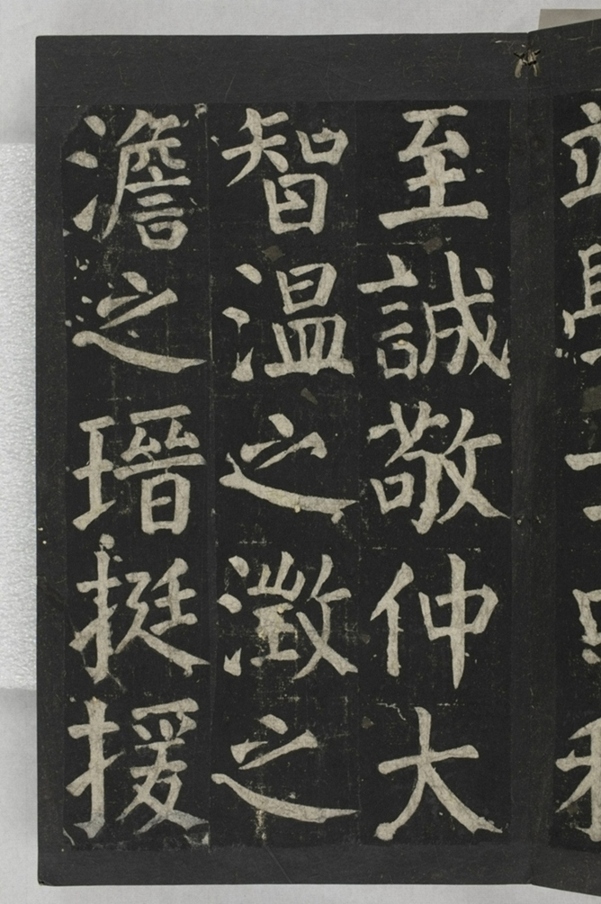 至誠敬仲大
智温之澂之
澹之瑨挺援